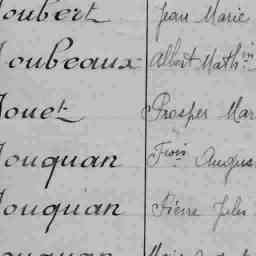 oubert Jean Marie
oubeaux Albert Math in
ouet Prosper Mar
ouquan Frois Augus
ouquan Pierre Jules
ouquan